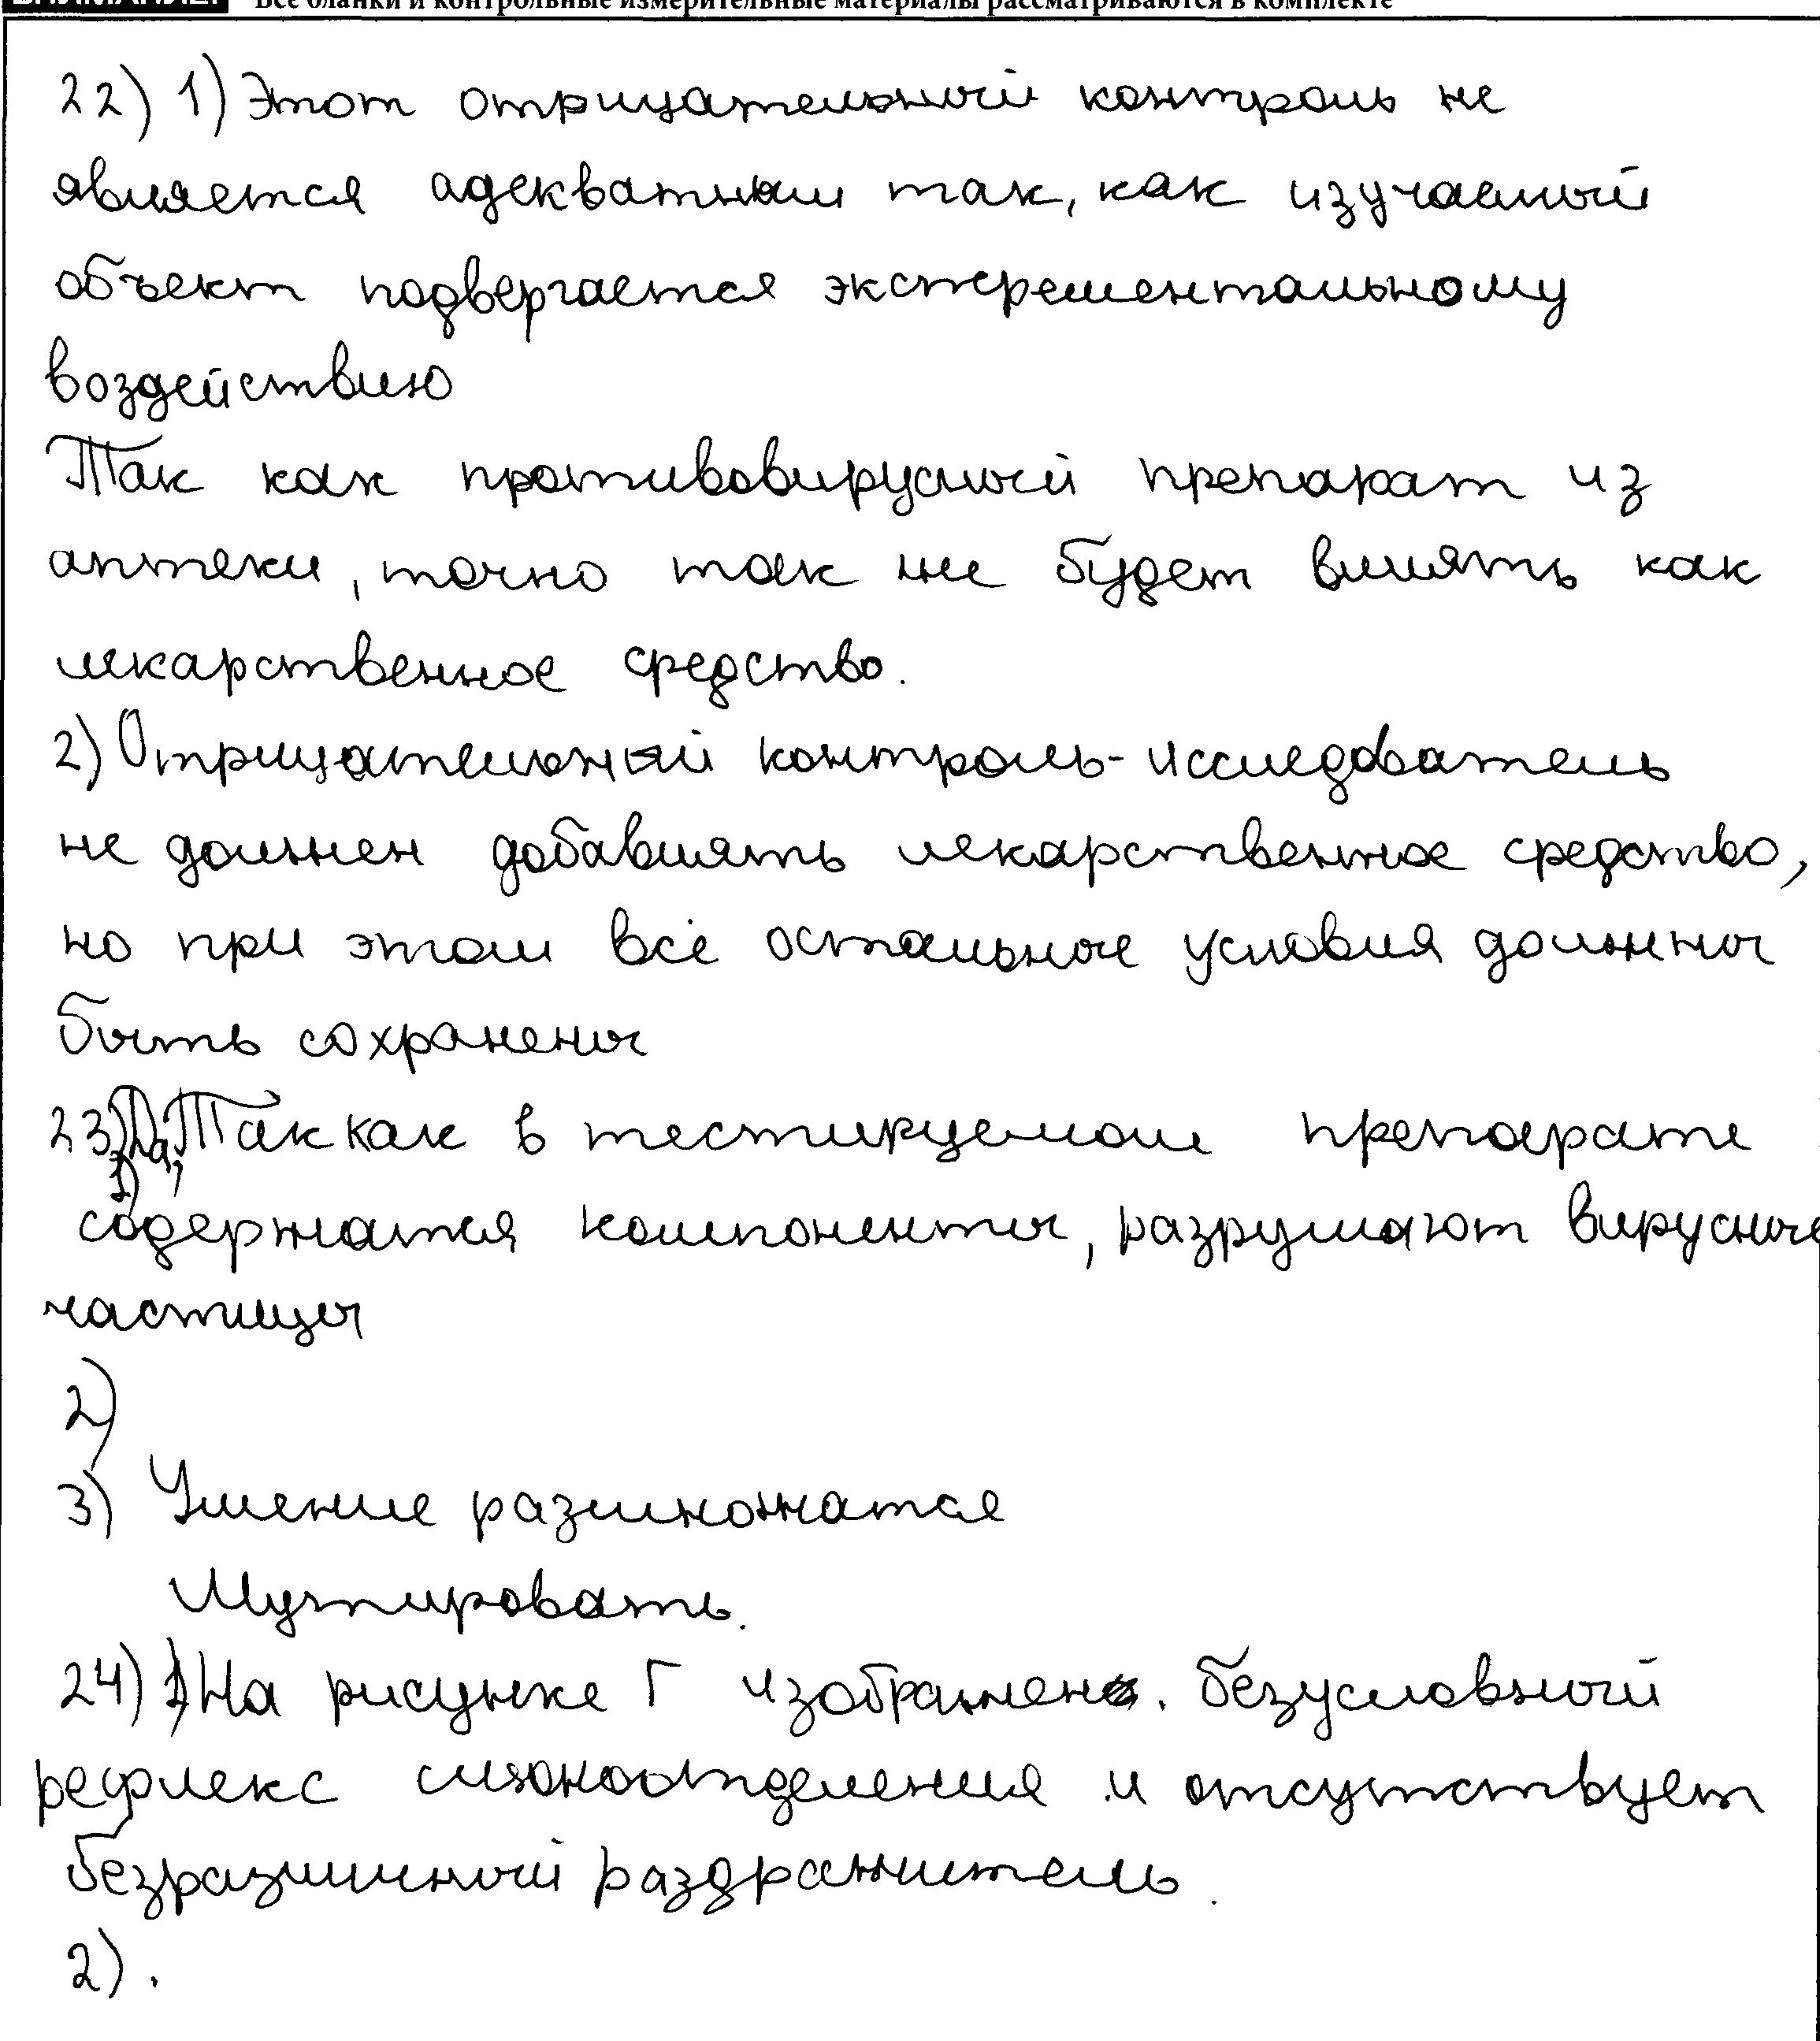 Все бланки и контрольные измерительные материалы рассматриваются в комплекте
22) 1) Этот отрицательный контроль не
является адекватным так, как изучаемый
объект подвергается эксперементальному
воздействию
Так как противовирусный препарат из
аптеки, точно так же будет влиять как
лекарственное средство.
2) Отрицательный контроль - исследователь
не должен добавлять лекарственное средство,
но при этом все остальные условия должны
быть сохранены
23) 1) Да, Так как в тестируемом препарате
содержатся компоненты, разрушают вирусные
частицы
2)
3) Умение размножатся
Мутировать.
24) 1) На рисунке Г изображен. безусловный
рефлекс слюноотделения и отсутствует
безразличный раздражитель.
2).